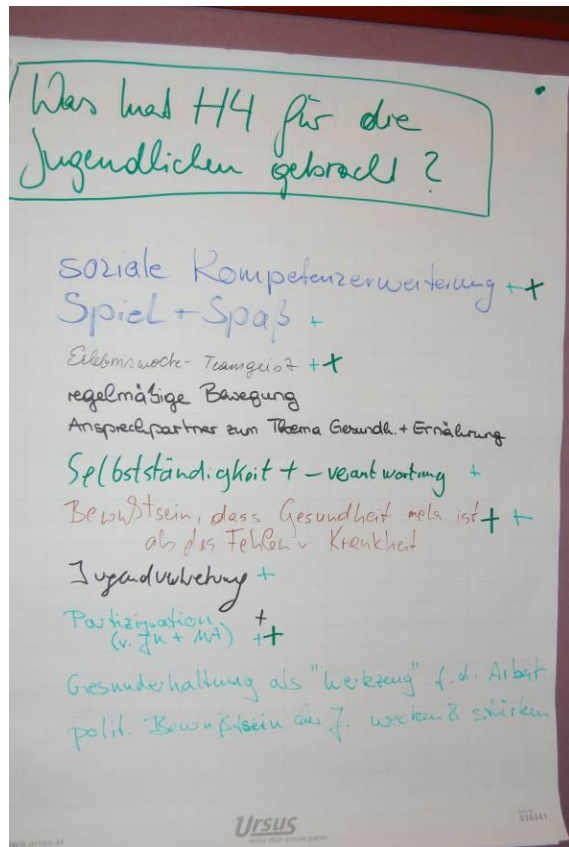 Was hat H4 für die
Jugendlichen gebracht?
soziale Kompetenzerweiterung ++
Spiel + Spaß +
Erlebniswoche - Teamgeist ++
regelmäßige Bewegung
Ansprechpartner zum Thema Gesundh. + Ernährung
Selbstständigkeit + -verantwortung +
Bewußtsein, dass Gesundheit mehr ist ++
als das Fehlen v. Krankheit
Jugendvertretung +
Partizipation +
(v. Ju + MA) ++
Gesunderhaltung als "Werkzeug" f. d. Arbeit
polit. Bewußtsein der J. wecken & stärken
Ursus
more than simple paper
www.ursus.at
036441